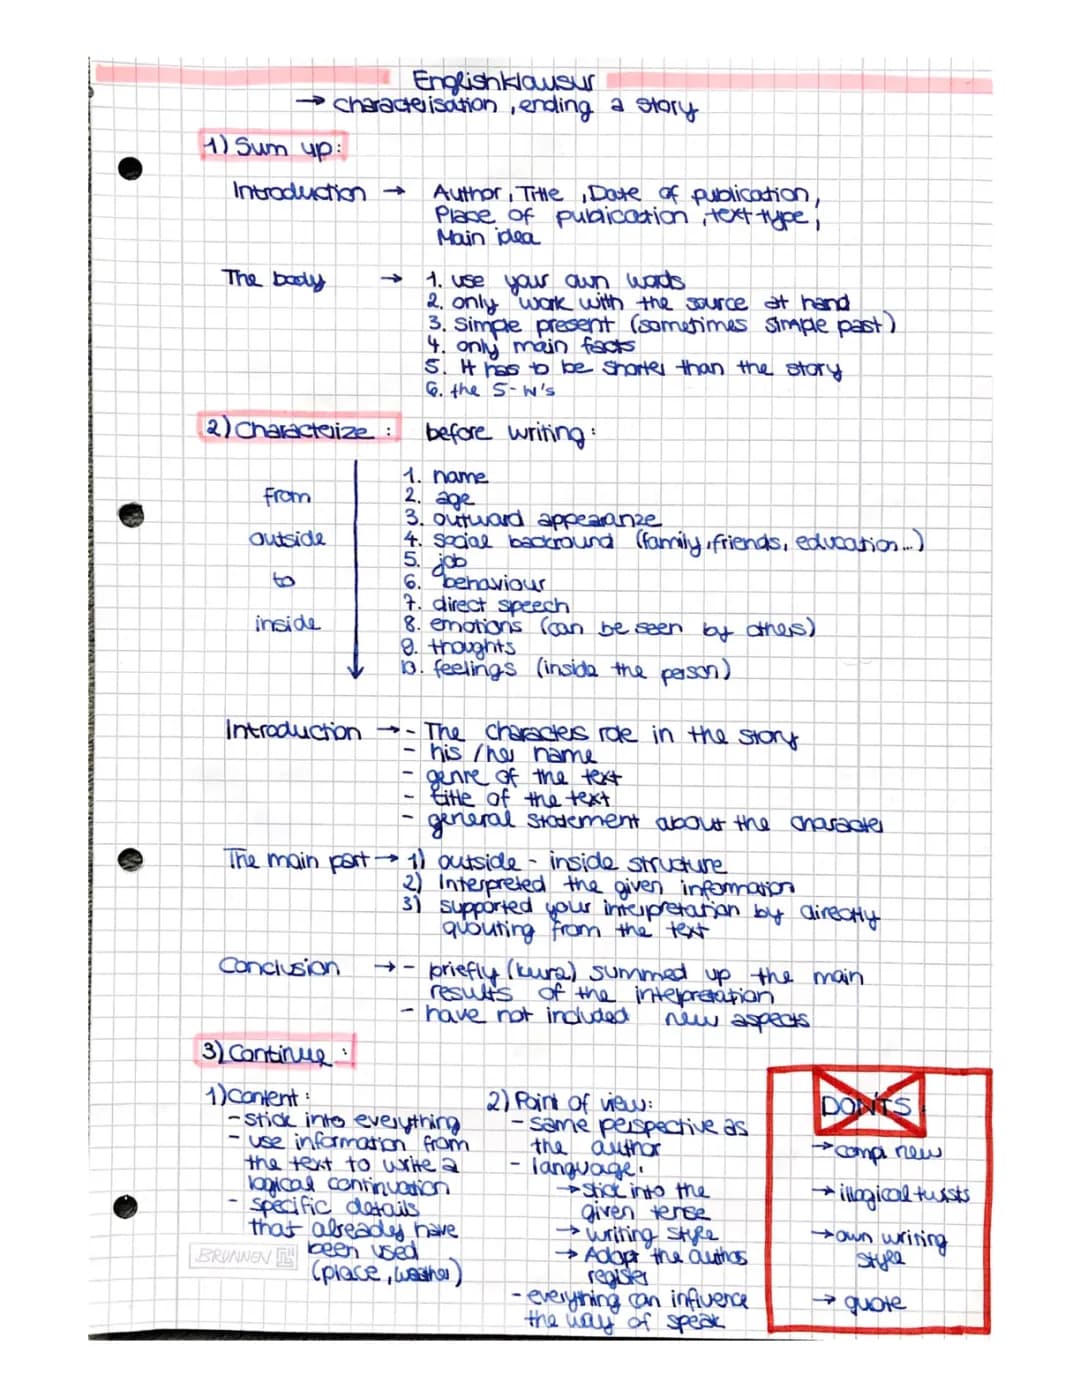 Englishklausur
→ characterisation, ending a story
1) Sum up:
Introduction → Author, Title, Date of publication,
Place of publication, text type,
Main idea
The body → 1. use your own words
2. only work with the source at hand
3. simple present (sometimes simple past)
4. only main facts
5. It has to be shorter than the story
6. the 5-W's
2) Characterize: before writing:
from outside to inside
1. name
2. age
3. outward appearanze
4. social backround (family, friends, education...)
5. job
6. behaviour
7. direct speech
8. emotions (can be seen by others)
9. thoughts
10. feelings (inside the person)
Introduction → - The characters role in the story
- his / her name
- genre of the text
- title of the text
- general statement about the character
The main part → 1) outside - inside structure
2) Interpreted the given information
3) supported your interpretation by directly
quouting from the text
Conclusion → - briefly (kurz) summed up the main
results of the interpretation
- have not included new aspects
3) Continue:
1) Content:
- stick into everything
- use information from
the text to write a
logical continuation
- specific details
that already have
been used
(place, weather)
BRUNNEN
2) Point of view:
- same perspective as
the author
- language:
→ stick into the
given tense
→ writing style
→ Adapt the authors
register
- everything can influence
the way of speak
DONTS:
→ comp. new
→ illogical twists
→ own writing
style
→ quote